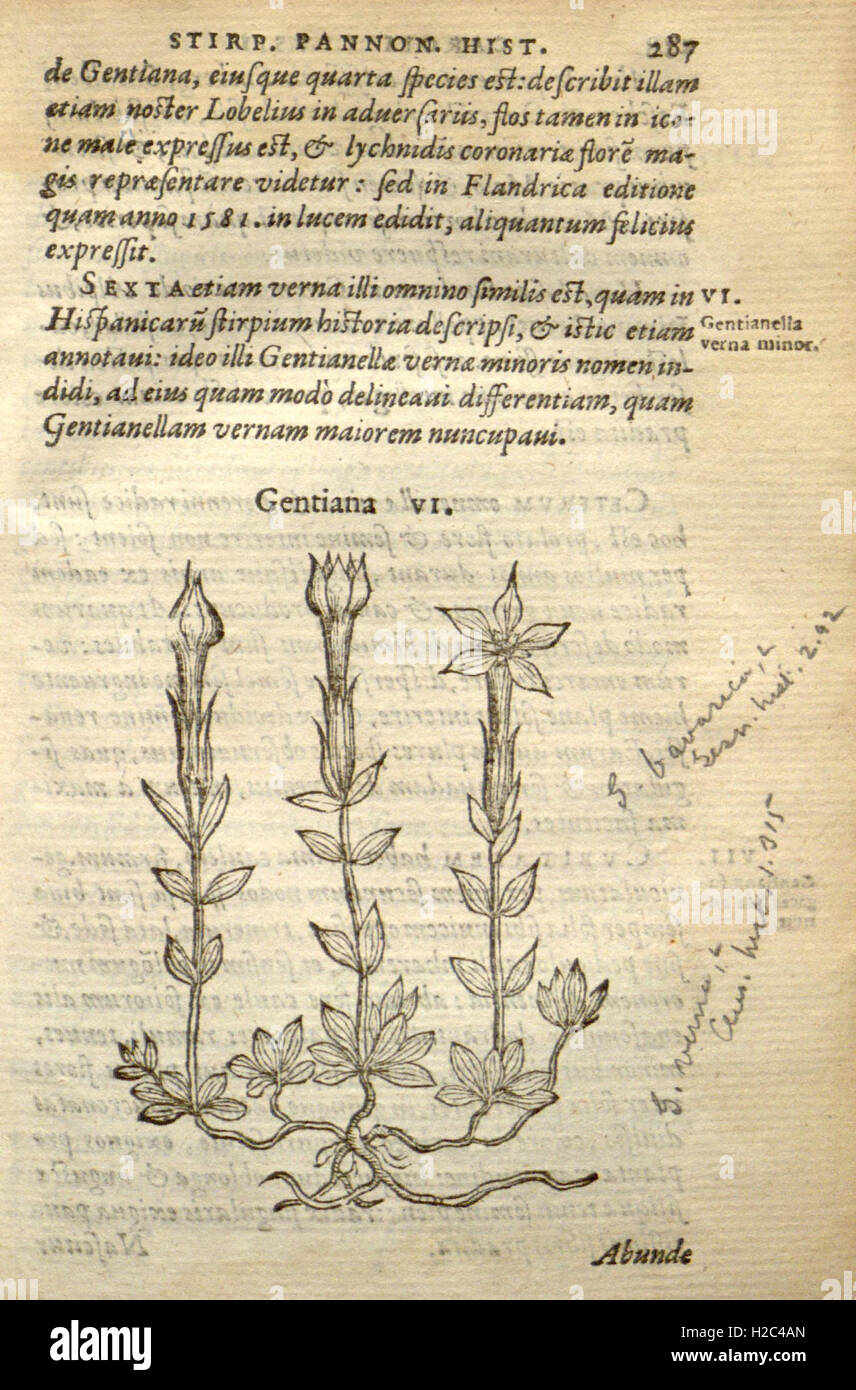 STIRP. PANNON. HIST. 287
de Gentiana, eiusque quarta species est: describit illam
etiam noster Lobelius in aduersariis, flos tamen in ico-
ne male expressus est, & lychnidis coronariæ florē ma-
gis repræsentare videtur: sed in Flandrica editione
quam anno 1581. in lucem edidit, aliquantum felicius
expressit.
SEXTA etiam verna illi omnino similis est, quam in VI.
Hispanicarū stirpium historia descripsi, & istic etiam Gentianella
annotaui: ideo illi Gentianellæ vernæ minoris nomen in- verna minor.
didi, ad eius quam modò delineaui differentiam, quam
Gentianellam vernam maiorem nuncupaui.
Gentiana VI.
G bavarica, L
hist. 2.92
G. verna, L
Clus. hist. 1.315
Abunde
alamy stock photo
H2C4AN
www.alamy.com